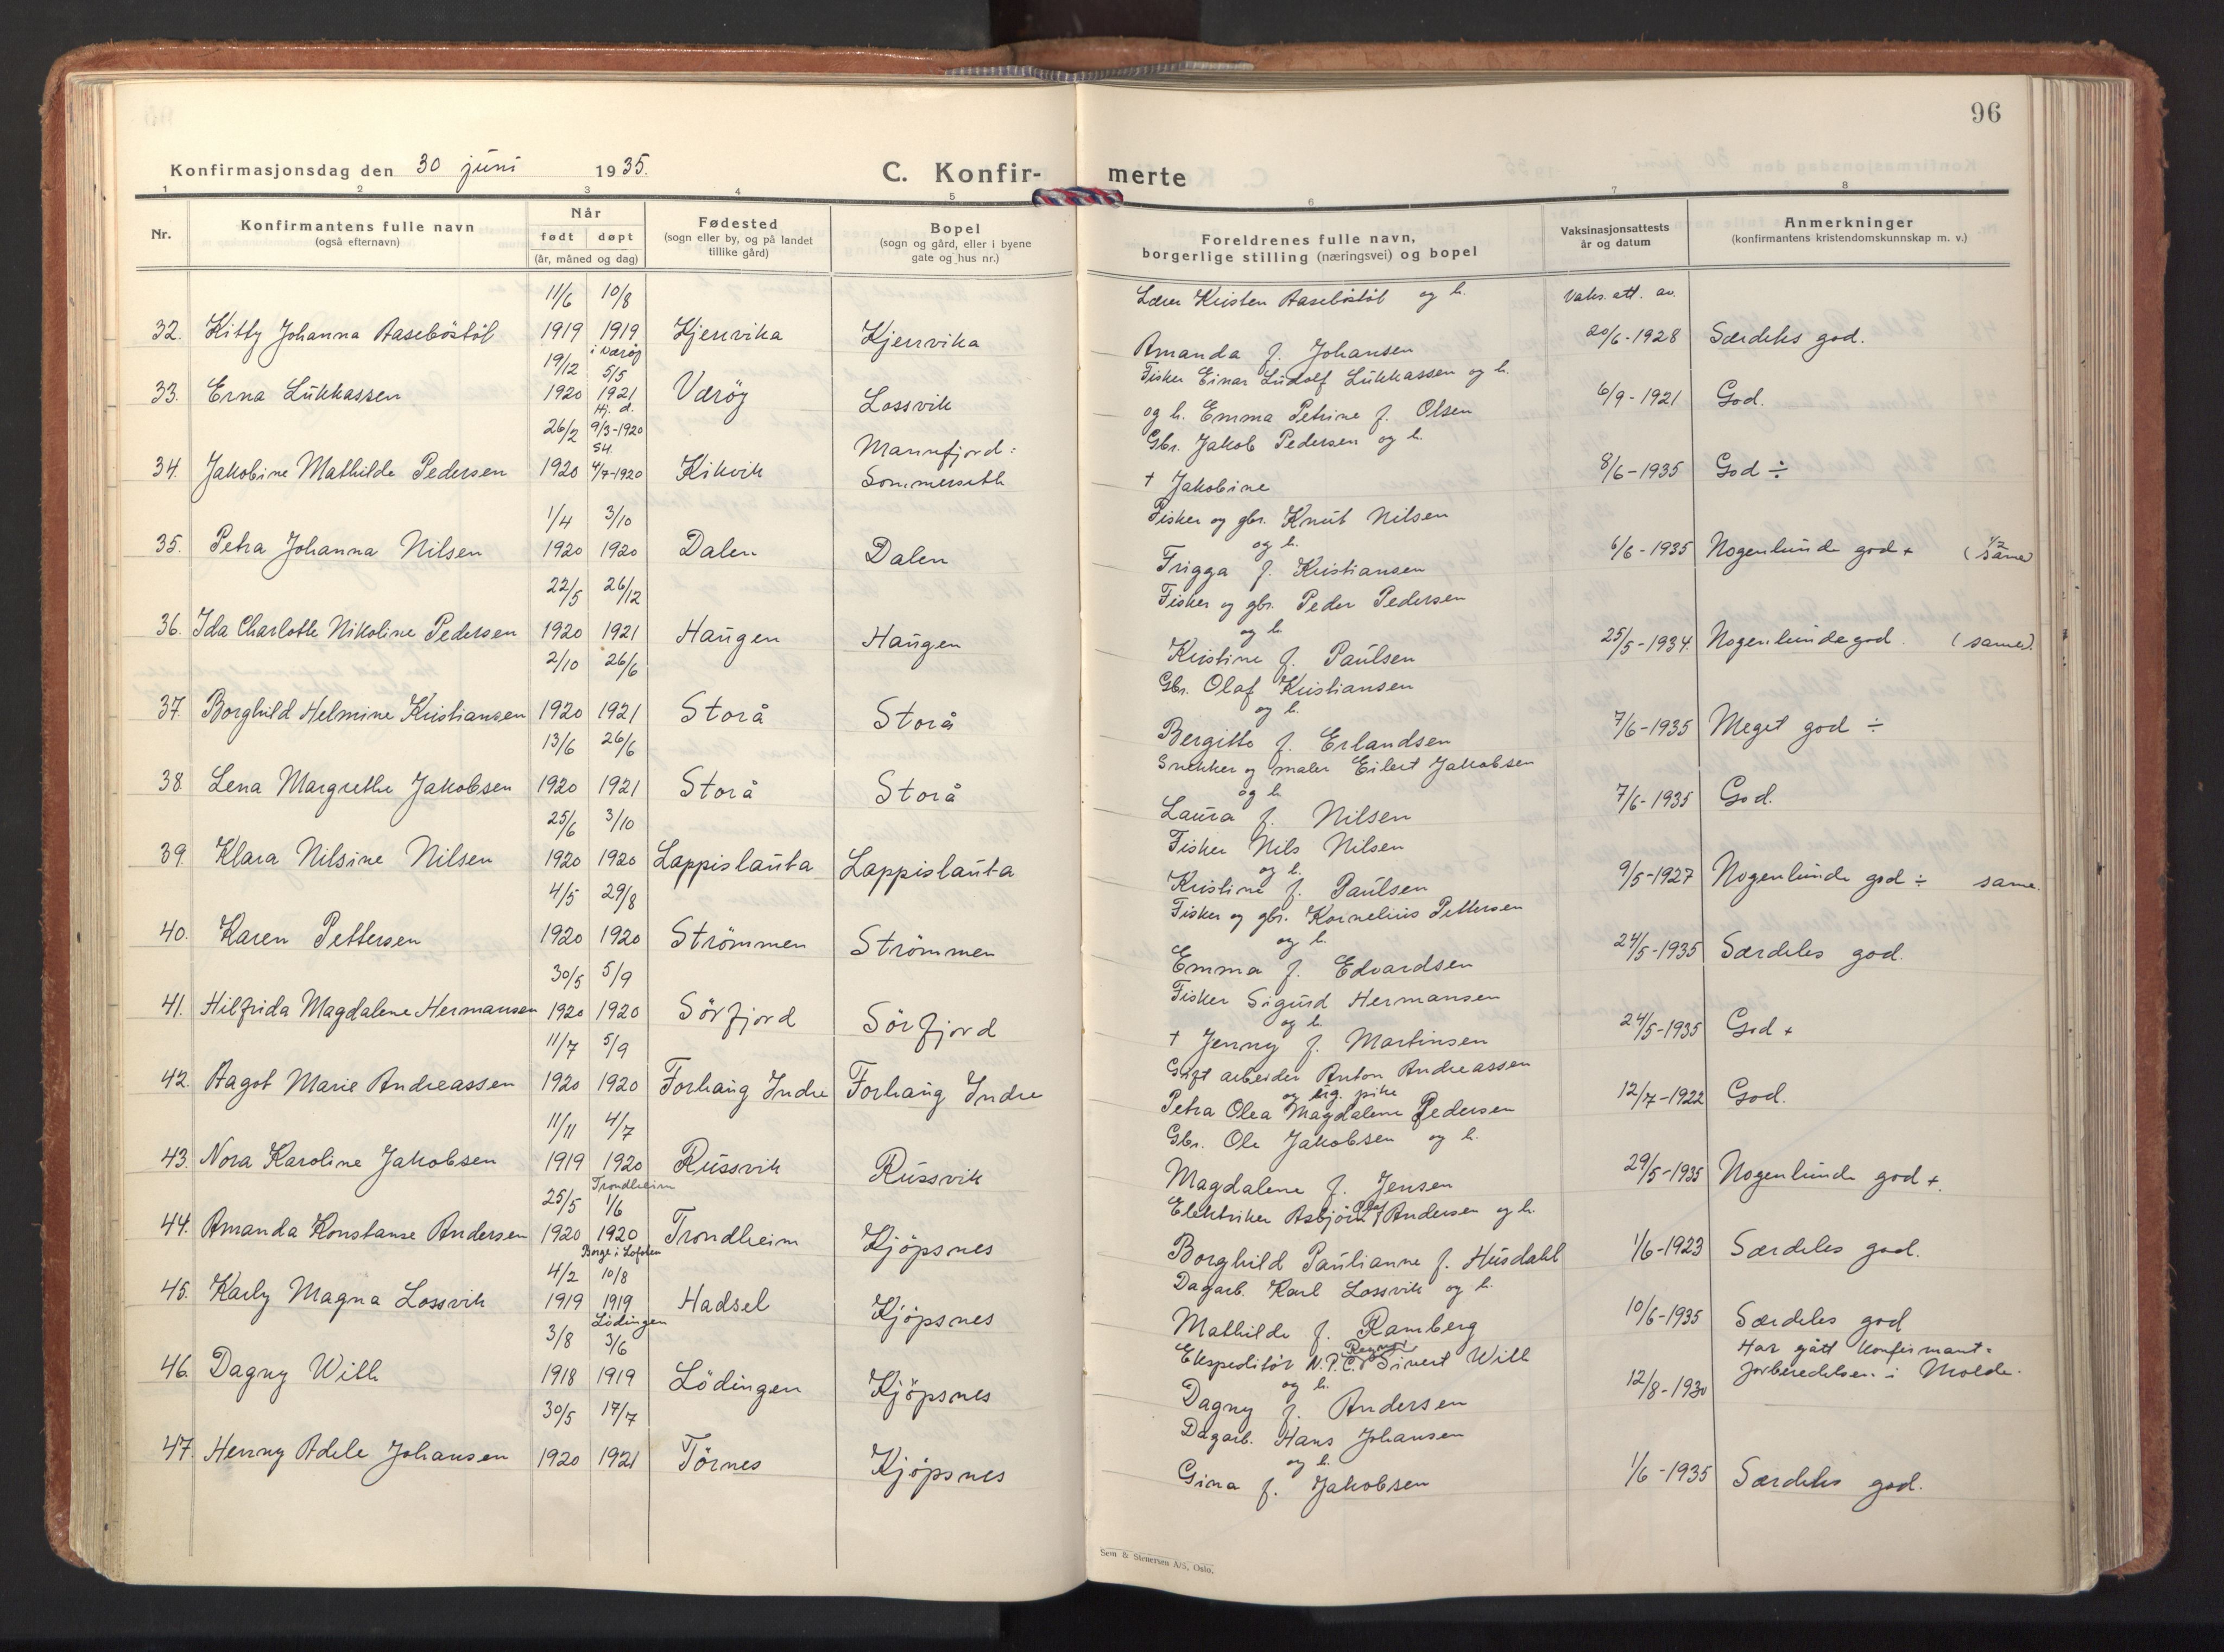 96
Konfirmasjonsdag den 30 juni 1935.
C. Konfir-
merte
1 2 3 4 5 6 7 8
Nr.
Konfirmantens fulle navn
(også efternavn)
Når
født døpt
(år, måned og dag)
Fødested
(sogn eller by, og på landet
tillike gård)
Bopel
(sogn og gård, eller i byene
gate og hus nr.)
Foreldrenes fulle navn,
borgerlige stilling (næringsvei) og bopel
Vaksinasjonsattests
år og datum
Anmerkninger
(konfirmantens kristendomskunnskap m. v.)
11/6 10/8 Lærer Kristen Aaseböstöl og h. Vaks. att. av.
32. Kitty Johanna Aaseböstöl 1919 1919 Kjerrvika Kjerrvika Amanda f. Johansen 20/6-1928 Særdeles god.
i Værøy
19/12 5/5 Fisker Einar Ludolf Lukkassen og h.
33. Erna Lukkassen 1920 1921 Værøy Lossvik og h. Emma Petrine f. Olsen 6/9-1921 God.
Hj. d.
26/2 9/3-1920 Mannfjord: Gbr. Jakob Pedersen og h.
St.
34. Jakobine Mathilde Pedersen 1920 4/7-1920 Kikvik Sommerseth † Jakobine 8/6-1935 God ÷
1/4 3/10 Fisker og gbr. Knut Nilsen
og h.
35. Petra Johanna Nilsen 1920 1920 Dalen Dalen Frigga f. Kristiansen 6/6-1935 Nogenlunde god + (1/2 same)
22/5 26/12 Fisker og gbr. Peder Pedersen
og h.
36. Ida Charlotte Nikoline Pedersen 1920 1921 Haugen Haugen Kristine f. Paulsen 25/5-1934. Nogenlunde god. (same).
2/10 26/6 Gbr. Olaf Kristiansen
og h.
37. Borghild Helmine Kristiansen 1920 1921 Storå Storå Bergitte f. Erlandsen 7/6-1935 Meget god ÷
13/6 26/6 Snekker og maler Eilert Jakobsen
og h.
38. Lena Margrethe Jakobsen 1920 1921 Storå Storå Laura f. Nilsen 7/6-1935 God.
25/6 3/10 Fisker Nils Nilsen
og h.
39. Klara Nilsine Nilsen 1920 1920 Lappislauta Lappislauta Kristine f. Paulsen 9/5-1927 Nogenlunde god ÷ same.
4/5 29/8 Fisker og gbr. Kornelius Pettersen
og h.
40. Karen Pettersen 1920 1920 Strömmen Strömmen Emma f. Edvardsen 24/5-1935 Særdeles god.
30/5 5/9 Fisker Sigurd Hermansen
og h.
41. Hilfrida Magdalene Hermansen 1920 1920 Sörfjord Sörfjord † Jenny f. Martinsen 24/5-1935 God +
11/7 5/9 Gift arbeider Anton Andreassen
og ug. pike
42. Aagot Marie Andreassen 1920 1920 Forhaug Indre Forhaug Indre Petra Olea Magdalene Pedersen 12/7-1922 God.
11/11 4/7 Gbr. Ole Jakobsen og h.
43. Nora Karoline Jakobsen 1919 1920 Russvik Russvik Magdalene f. Jensen 29/5-1935 Nogenlunde god +.
Trondheim
25/5 1/6 Elektriker Asbjörn Olaf Andersen og h.
44. Amanda Konstanse Andersen 1920 1920 Trondheim Kjöpsnes Borghild Paulianne f. Husdahl 1/6-1923 Særdeles god.
Borge i Lofoten
4/2 10/8 Dagarb. Karl Lossvik og h.
45. Karly Magna Lossvik 1919 1919 Hadsel Kjöpsnes Mathilde f. Ramberg 10/6-1935 Særdeles god
Lödingen
3/8 3/6 Ekspeditör N.P.C. Sivert With Har gått konfirmant-
og h.
46. Dagny With 1918 1919 Lödingen Kjöpsnes Dagny f. Andersen 12/8-1930 forberedelsen i Molde.
30/5 17/7 Dagarb. Hans Johansen
og h.
47. Henny Adele Johansen 1920 1921 Törnes Kjöpsnes Gina f. Jakobsen 1/6-1935 Særdeles god.
Sem & Stenersen A/S, Oslo.